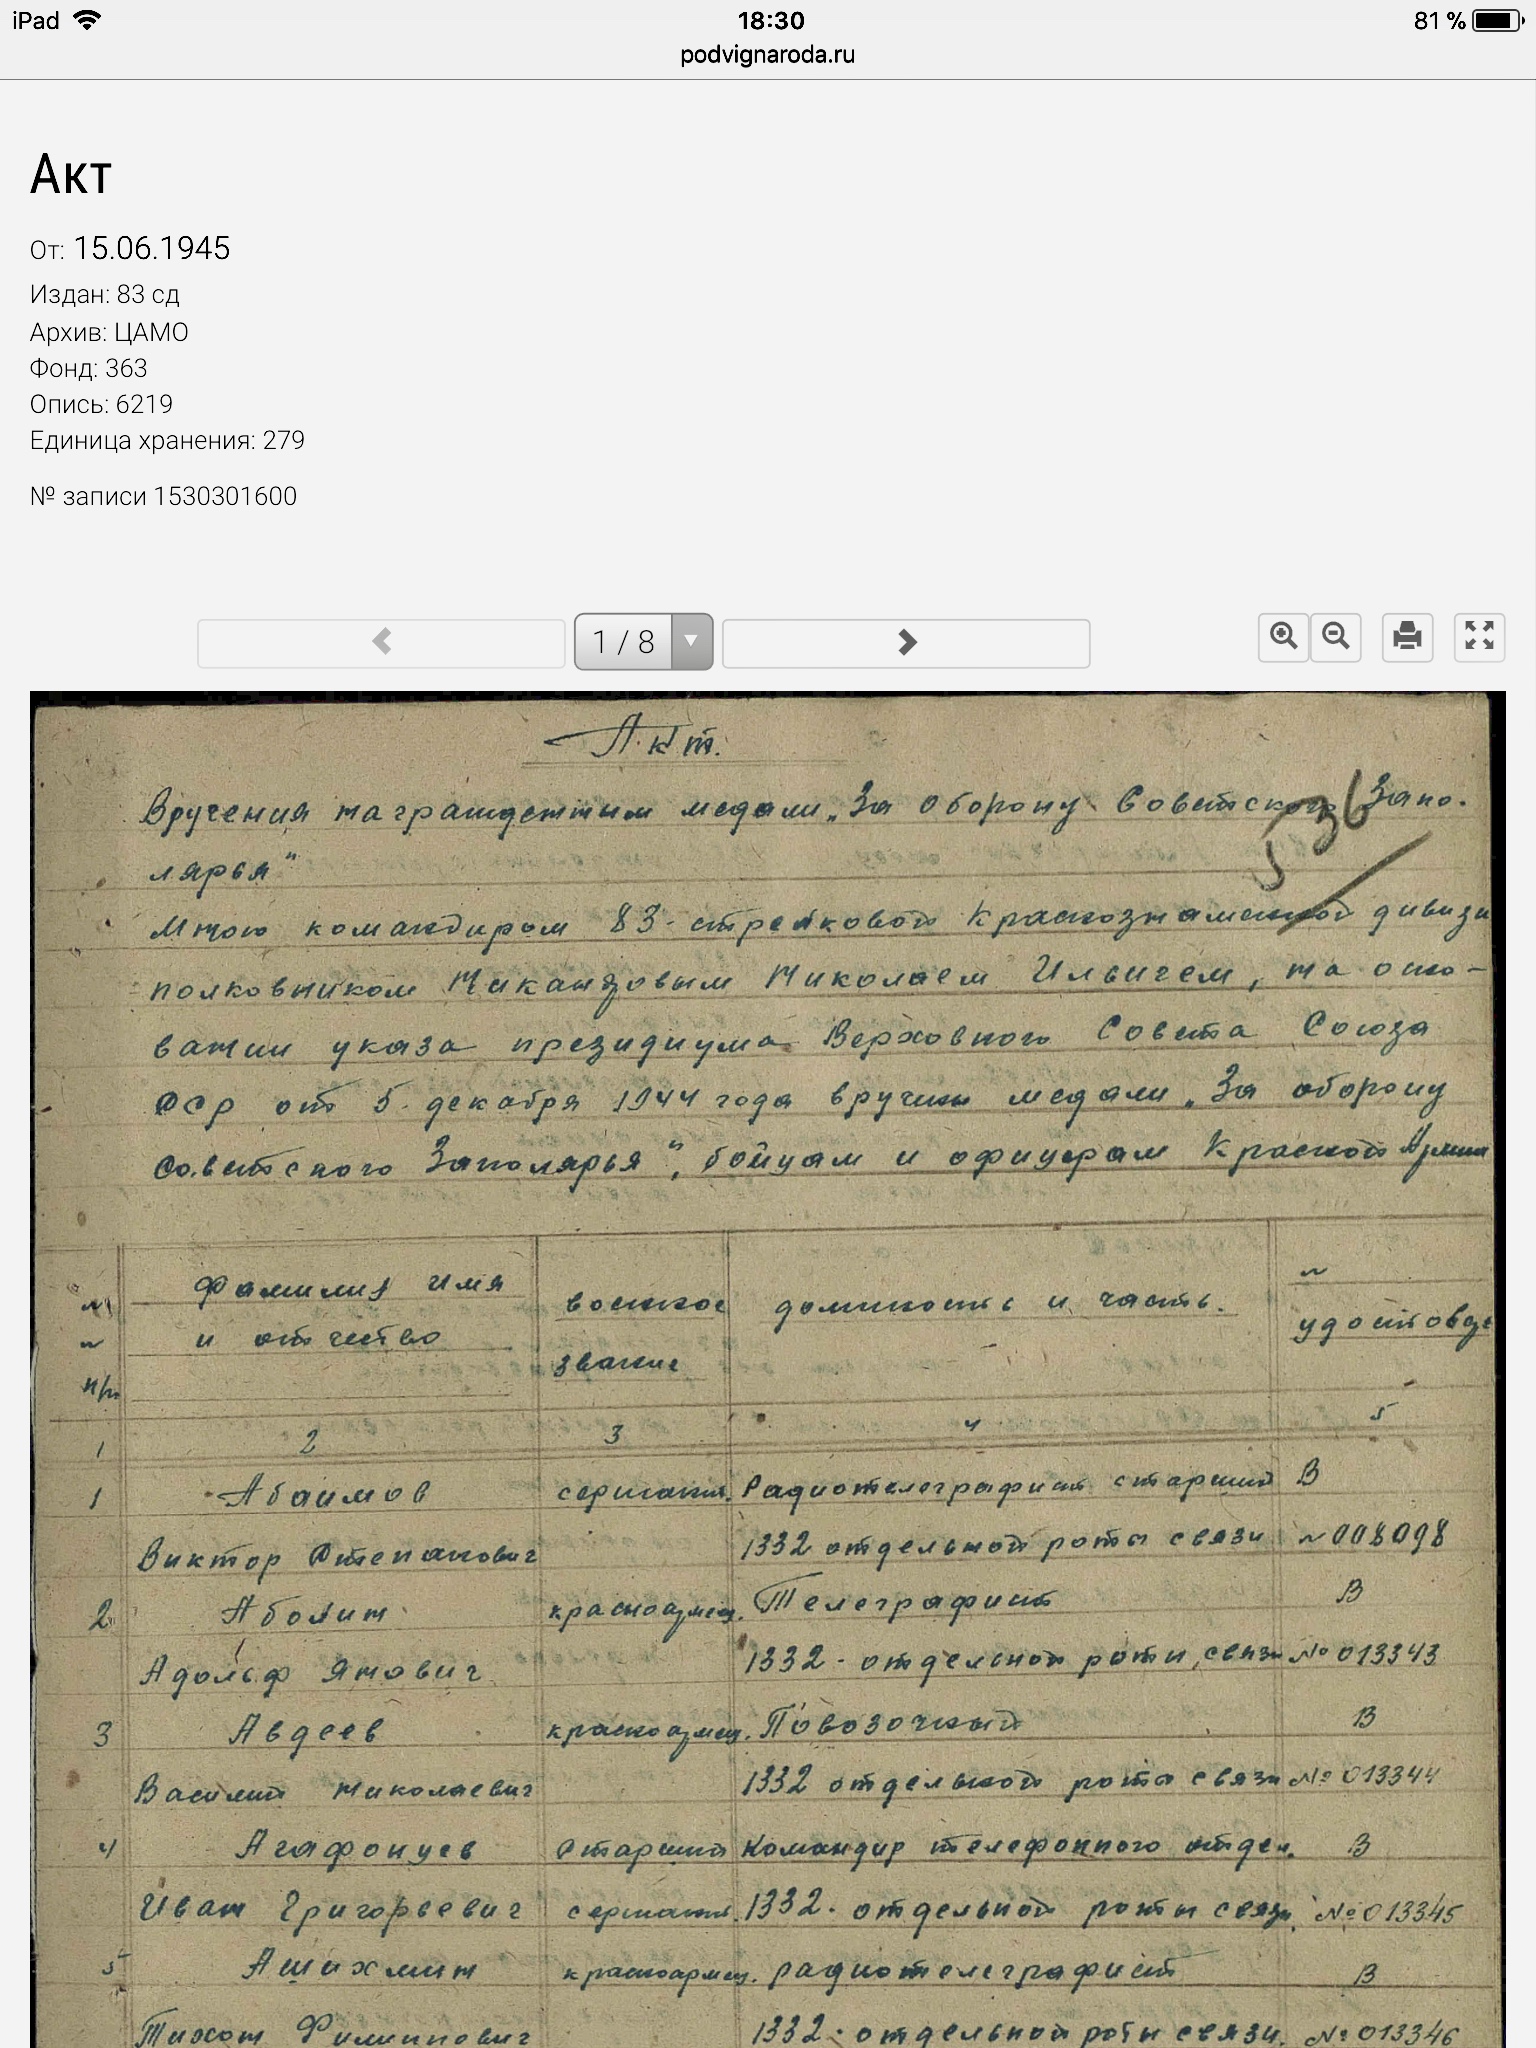 iPad 18:30 81 %
podvignaroda.ru
Акт
От: 15.06.1945
Издан: 83 сд
Архив: ЦАМО
Фонд: 363
Опись: 6219
Единица хранения: 279
№ записи 1530301600
1 / 8
Акт.
Вручения награжденным медали „За оборону Советского Запо-
лярья"
536
Мною командиром 83-стрелковой Краснознаменной дивизи
полковником Никандровым Николаем Ильичем, на осно-
вании указа президиума Верховного Совета Союза
ССР от 5 декабря 1944 года вручены медали „За оборону
Советского Заполярья", бойцам и офицерам Красной Армии
№ Фамилия имя военное должность и часть. №
№ и отчество звание удостовере
п/п
1 2 3 4 5
1 Абаимов сержант. Радиотелеграфист старший В
Виктор Степанович 1332 отдельной роты связи №008098
2 Аболин красноармец. Телеграфист В
Адольф Янович 1332 - отдельной роты связи №013343
3 Авдеев красноармец. Повозочный В
Василий Николаевич 1332 отдельной роты связи №013344
4 Агафонцев Старший Командир телефонного отдел. В
Иван Григорьевич сержант. 1332 - отдельной роты связи №013345
5 Ашихмин красноармец. радиотелеграфист В
Тихон Филиппович 1332 - отдельной роты связи. №013346